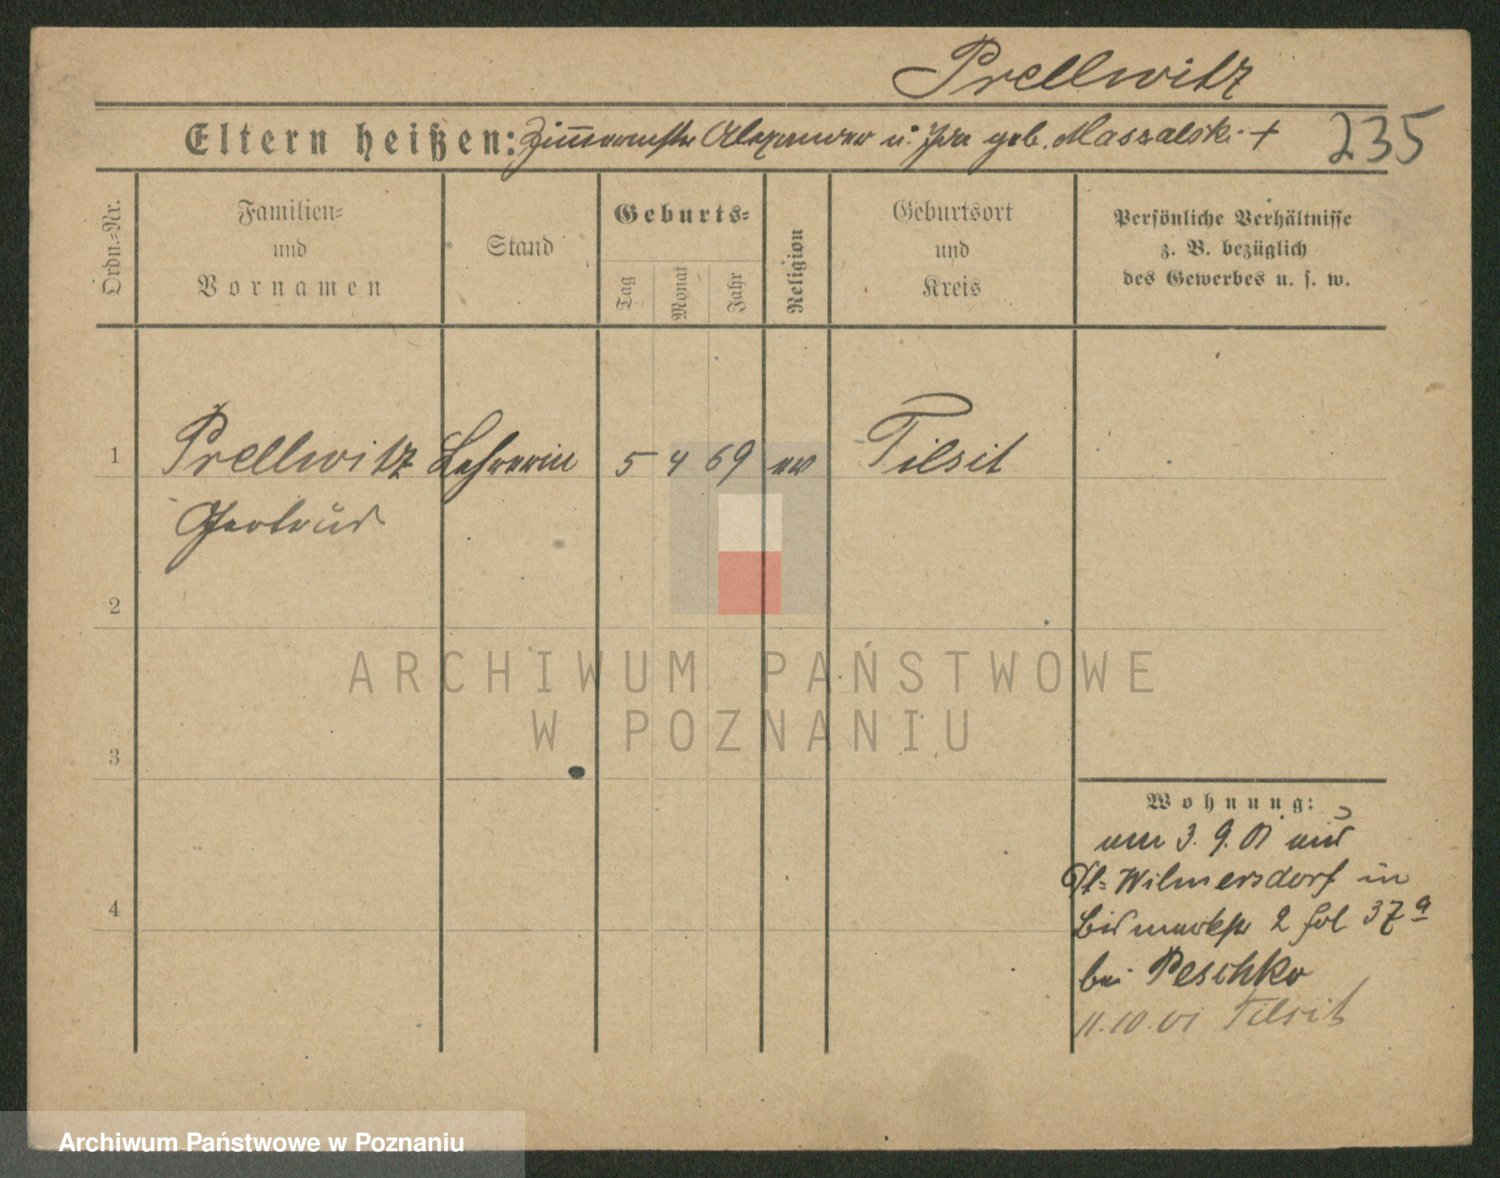 Prellwitz
Eltern heißen: Zimmermstr Alexander u. Ida geb. Massalski + 235
Ordn.-Nr.
Familien-
und
Vornamen
Stand
Geburts-
Tag
Monat
Jahr
Religion
Geburtsort
und
Kreis
Persönliche Verhältnisse
z. B. bezüglich
des Gewerbes u. s. w.
1 Prellwitz Lehrerin 5 4 69 ev Tilsit
Gertrud
2
3
4
ARCHIWUM PAŃSTWOWE
W POZNANIU
Wohnung:
am 3. 9. 01 aus
Dt-Wilmersdorf in
Bismarkstr 2 fol 37a
bei Peschko
11.10.01 Tilsit
Archiwum Państwowe w Poznaniu